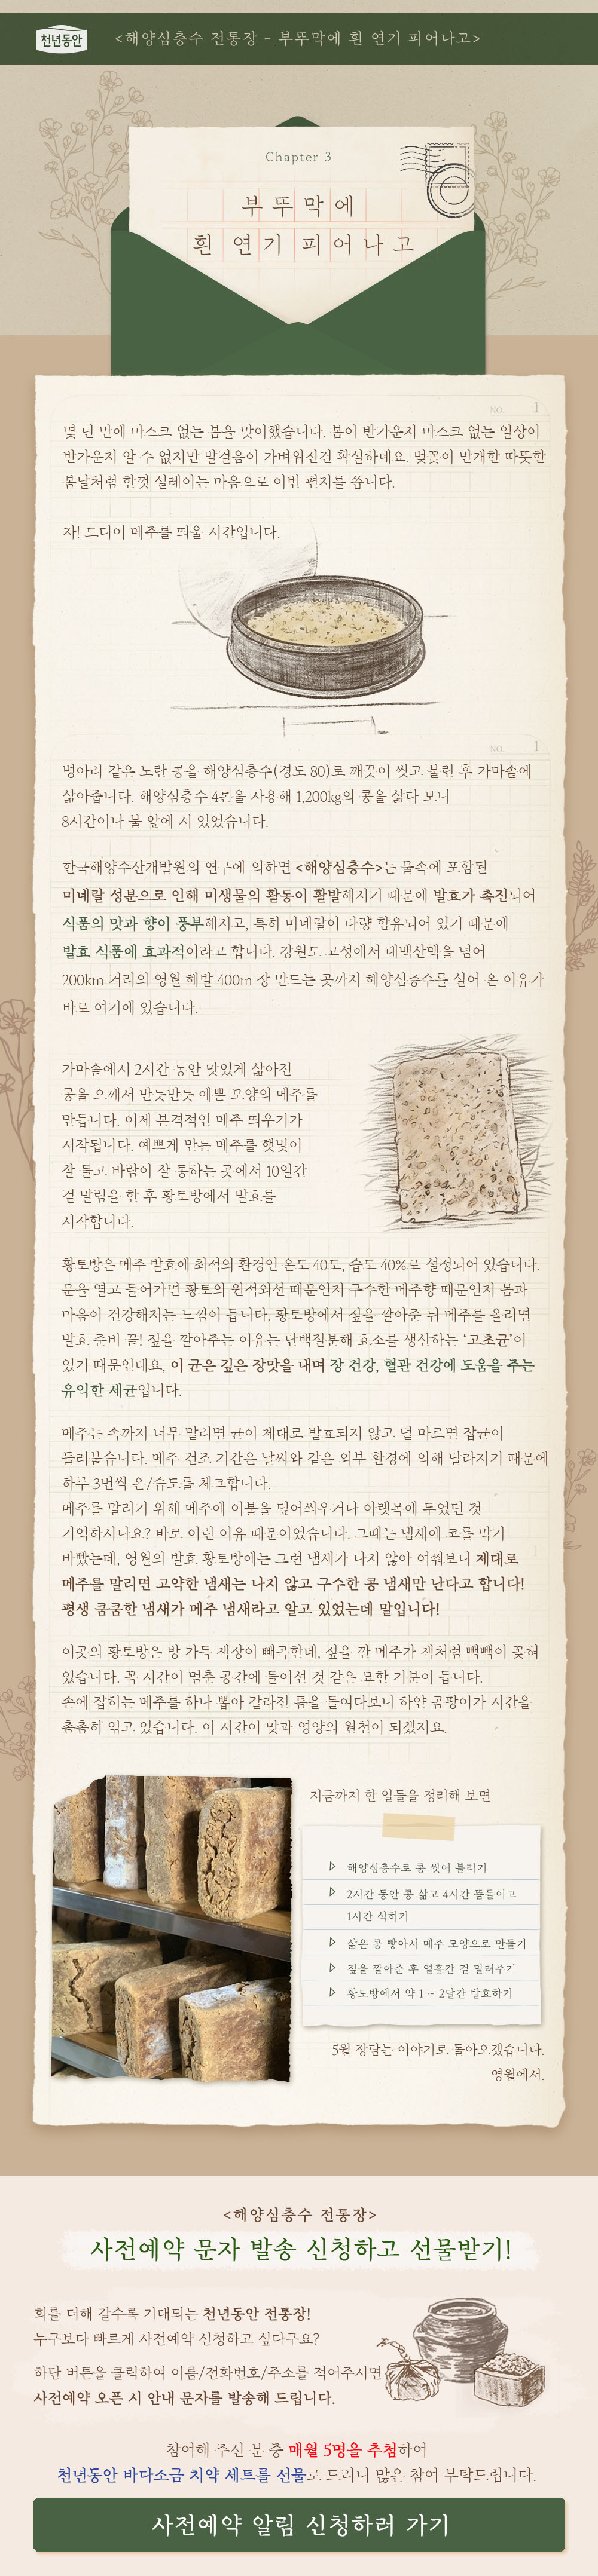 천년동안
<해양심층수 전통장 - 부뚜막에 흰 연기 피어나고>
Chapter 3
부뚜막에
흰 연기 피어나고
NO. 1
몇 년 만에 마스크 없는 봄을 맞이했습니다. 봄이 반가운지 마스크 없는 일상이
반가운지 알 수 없지만 발걸음이 가벼워진건 확실하네요. 벚꽃이 만개한 따뜻한
봄날처럼 한껏 설레이는 마음으로 이번 편지를 씁니다.
자! 드디어 메주를 띄울 시간입니다.
NO. 1
병아리 같은 노란 콩을 해양심층수(경도 80)로 깨끗이 씻고 불린 후 가마솥에
삶아줍니다. 해양심층수 4톤을 사용해 1,200kg의 콩을 삶다 보니
8시간이나 불 앞에 서 있었습니다.
한국해양수산개발원의 연구에 의하면 <해양심층수>는 물속에 포함된
미네랄 성분으로 인해 미생물의 활동이 활발해지기 때문에 발효가 촉진되어
식품의 맛과 향이 풍부해지고, 특히 미네랄이 다량 함유되어 있기 때문에
발효 식품에 효과적이라고 합니다. 강원도 고성에서 태백산맥을 넘어
200km 거리의 영월 해발 400m 장 만드는 곳까지 해양심층수를 실어 온 이유가
바로 여기에 있습니다.
가마솥에서 2시간 동안 맛있게 삶아진
콩을 으깨서 반듯반듯 예쁜 모양의 메주를
만듭니다. 이제 본격적인 메주 띄우기가
시작됩니다. 예쁘게 만든 메주를 햇빛이
잘 들고 바람이 잘 통하는 곳에서 10일간
겉 말림을 한 후 황토방에서 발효를
시작합니다.
황토방은 메주 발효에 최적의 환경인 온도 40도, 습도 40%로 설정되어 있습니다.
문을 열고 들어가면 황토의 원적외선 때문인지 구수한 메주향 때문인지 몸과
마음이 건강해지는 느낌이 듭니다. 황토방에서 짚을 깔아준 뒤 메주를 올리면
발효 준비 끝! 짚을 깔아주는 이유는 단백질분해 효소를 생산하는 '고초균'이
있기 때문인데요, 이 균은 깊은 장맛을 내며 장 건강, 혈관 건강에 도움을 주는
유익한 세균입니다.
메주는 속까지 너무 말리면 균이 제대로 발효되지 않고 덜 마르면 잡균이
들러붙습니다. 메주 건조 기간은 날씨와 같은 외부 환경에 의해 달라지기 때문에
하루 3번씩 온/습도를 체크합니다.
메주를 말리기 위해 메주에 이불을 덮어씌우거나 아랫목에 두었던 것
기억하시나요? 바로 이런 이유 때문이었습니다. 그때는 냄새에 코를 막기
바빴는데, 영월의 발효 황토방에는 그런 냄새가 나지 않아 여쭤보니 제대로
메주를 말리면 고약한 냄새는 나지 않고 구수한 콩 냄새만 난다고 합니다!
평생 쿰쿰한 냄새가 메주 냄새라고 알고 있었는데 말입니다!
이곳의 황토방은 방 가득 책장이 빼곡한데, 짚을 깐 메주가 책처럼 빽빽이 꽂혀
있습니다. 꼭 시간이 멈춘 공간에 들어선 것 같은 묘한 기분이 듭니다.
손에 잡히는 메주를 하나 뽑아 갈라진 틈을 들여다보니 하얀 곰팡이가 시간을
촘촘히 엮고 있습니다. 이 시간이 맛과 영양의 원천이 되겠지요.
지금까지 한 일들을 정리해 보면
▷ 해양심층수로 콩 씻어 불리기
▷ 2시간 동안 콩 삶고 4시간 뜸들이고
1시간 식히기
▷ 삶은 콩 빻아서 메주 모양으로 만들기
▷ 짚을 깔아준 후 열흘간 겉 말려주기
▷ 황토방에서 약 1 ~ 2달간 발효하기
5월 장담는 이야기로 돌아오겠습니다.
영월에서.
<해양심층수 전통장>
사전예약 문자 발송 신청하고 선물받기!
회를 더해 갈수록 기대되는 천년동안 전통장!
누구보다 빠르게 사전예약 신청하고 싶다구요?
하단 버튼을 클릭하여 이름/전화번호/주소를 적어주시면
사전예약 오픈 시 안내 문자를 발송해 드립니다.
참여해 주신 분 중 매월 5명을 추첨하여
천년동안 바다소금 치약 세트를 선물로 드리니 많은 참여 부탁드립니다.
사전예약 알림 신청하러 가기